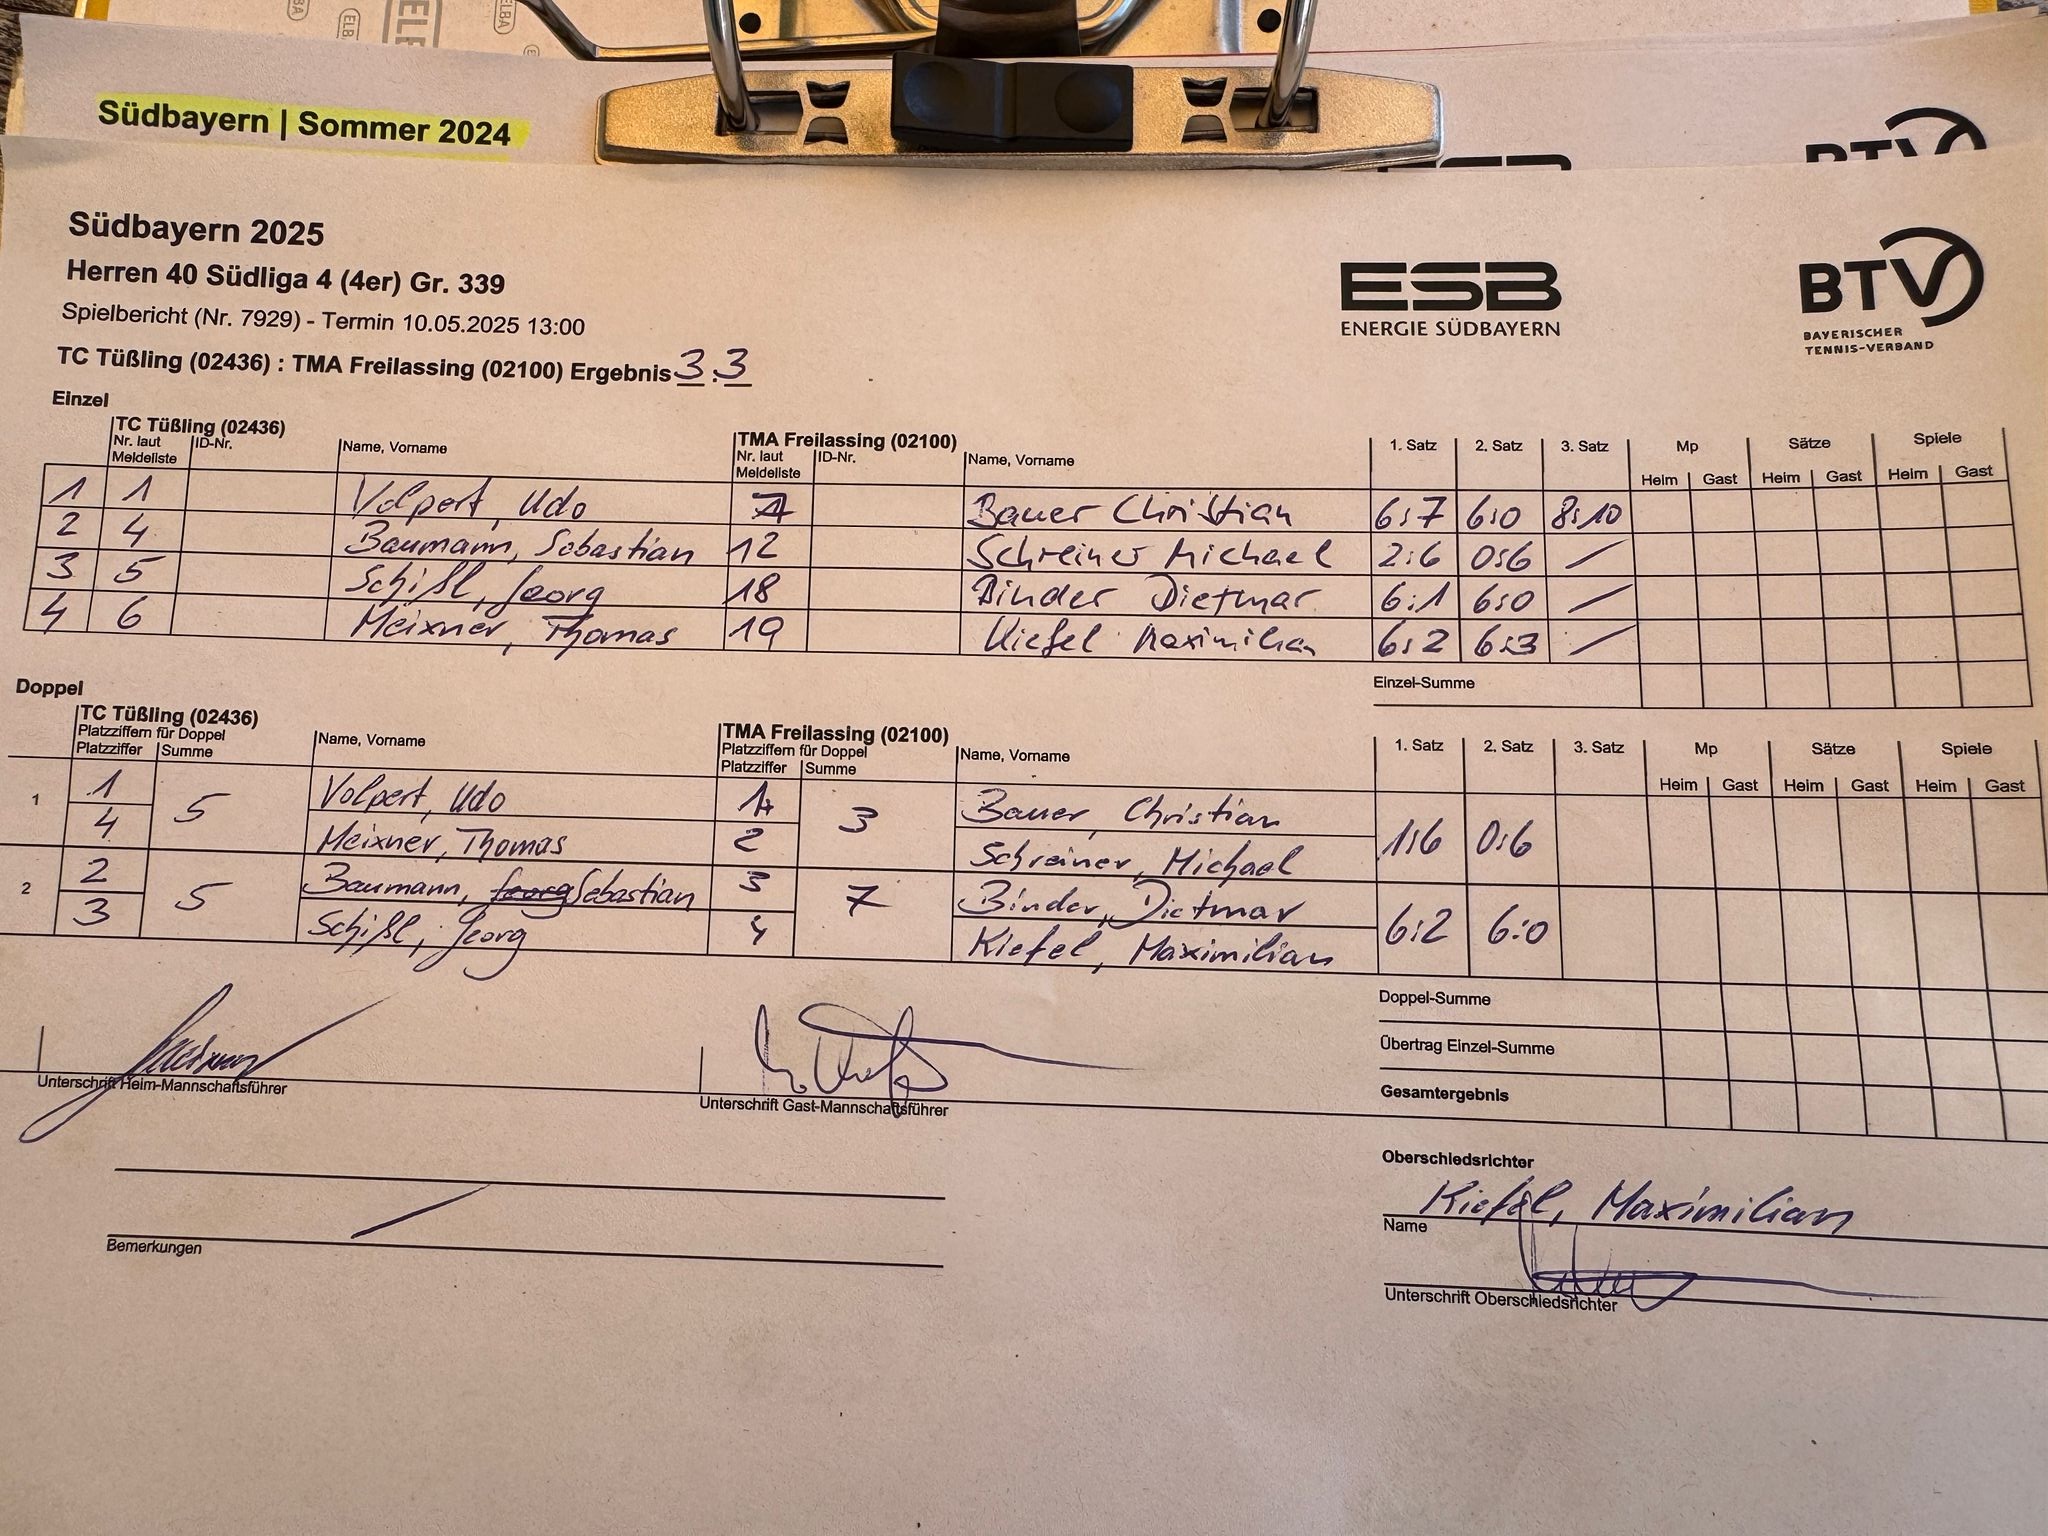 ELBA
ELBA
Südbayern | Sommer 2024
BTV
Südbayern 2025
Herren 40 Südliga 4 (4er) Gr. 339
Spielbericht (Nr. 7929) - Termin 10.05.2025 13:00
TC Tüßling (02436) : TMA Freilassing (02100) Ergebnis 3:3
ESB
ENERGIE SÜDBAYERN
BTV
BAYERISCHER
TENNIS-VERBAND
Einzel
TC Tüßling (02436) TMA Freilassing (02100)
Nr. laut Meldeliste ID-Nr. Name, Vorname Nr. laut Meldeliste ID-Nr. Name, Vorname 1. Satz 2. Satz 3. Satz Mp Sätze Spiele
Heim Gast Heim Gast Heim Gast
1 1 Volpert, Udo 7 Bauer Christian 6:7 6:0 8:10
2 4 Baumann, Sebastian 12 Schreiner Michael 2:6 0:6 /
3 5 Schißl, Georg 18 Binder Dietmar 6:1 6:0 /
4 6 Meixner, Thomas 19 Kiefel Maximilian 6:2 6:3 /
Einzel-Summe
Doppel
TC Tüßling (02436) TMA Freilassing (02100)
Platzziffern für Doppel Platzziffern für Doppel
Platzziffer Summe Name, Vorname Platzziffer Summe Name, Vorname 1. Satz 2. Satz 3. Satz Mp Sätze Spiele
Heim Gast Heim Gast Heim Gast
1 1 5 Volpert, Udo 1 3 Bauer, Christian 1:6 0:6
4 Meixner, Thomas 2 Schreiner, Michael
2 2 5 Baumann, Georg Sebastian 3 7 Binder, Dietmar 6:2 6:0
3 Schißl, Georg 4 Kiefel, Maximilian
Doppel-Summe
Übertrag Einzel-Summe
Gesamtergebnis
Unterschrift Heim-Mannschaftsführer
Unterschrift Gast-Mannschaftsführer
Oberschiedsrichter
Kiefel, Maximilian
Name
Unterschrift Oberschiedsrichter
/
Bemerkungen